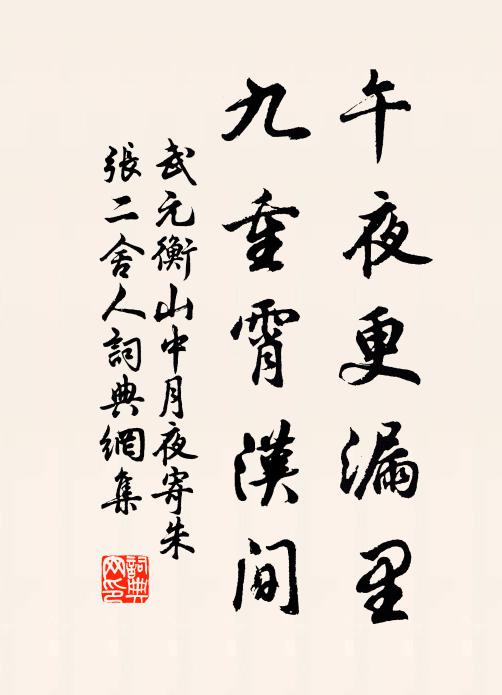 午夜更漏里
九重霄漢間
武元衡山中月夜寄朱
張二舍人詞典網集
詞典
网印